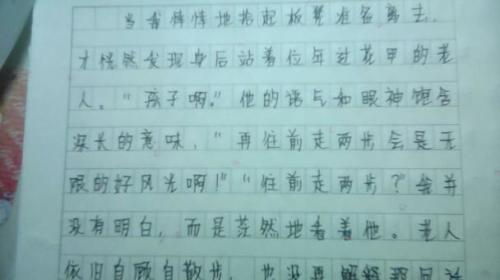 当我悻悻地抬起板凳准备离去，
才恍然发现身后站着位年过花甲的老
人。“孩子啊。”他的语气和眼神饱含
深长的意味，“再往前走两步会是无
限的好风光啊！”“往前走两步？”我并
没有明白，而是茫然地看着他。老人
依旧自顾自散步，也没再解释那句话